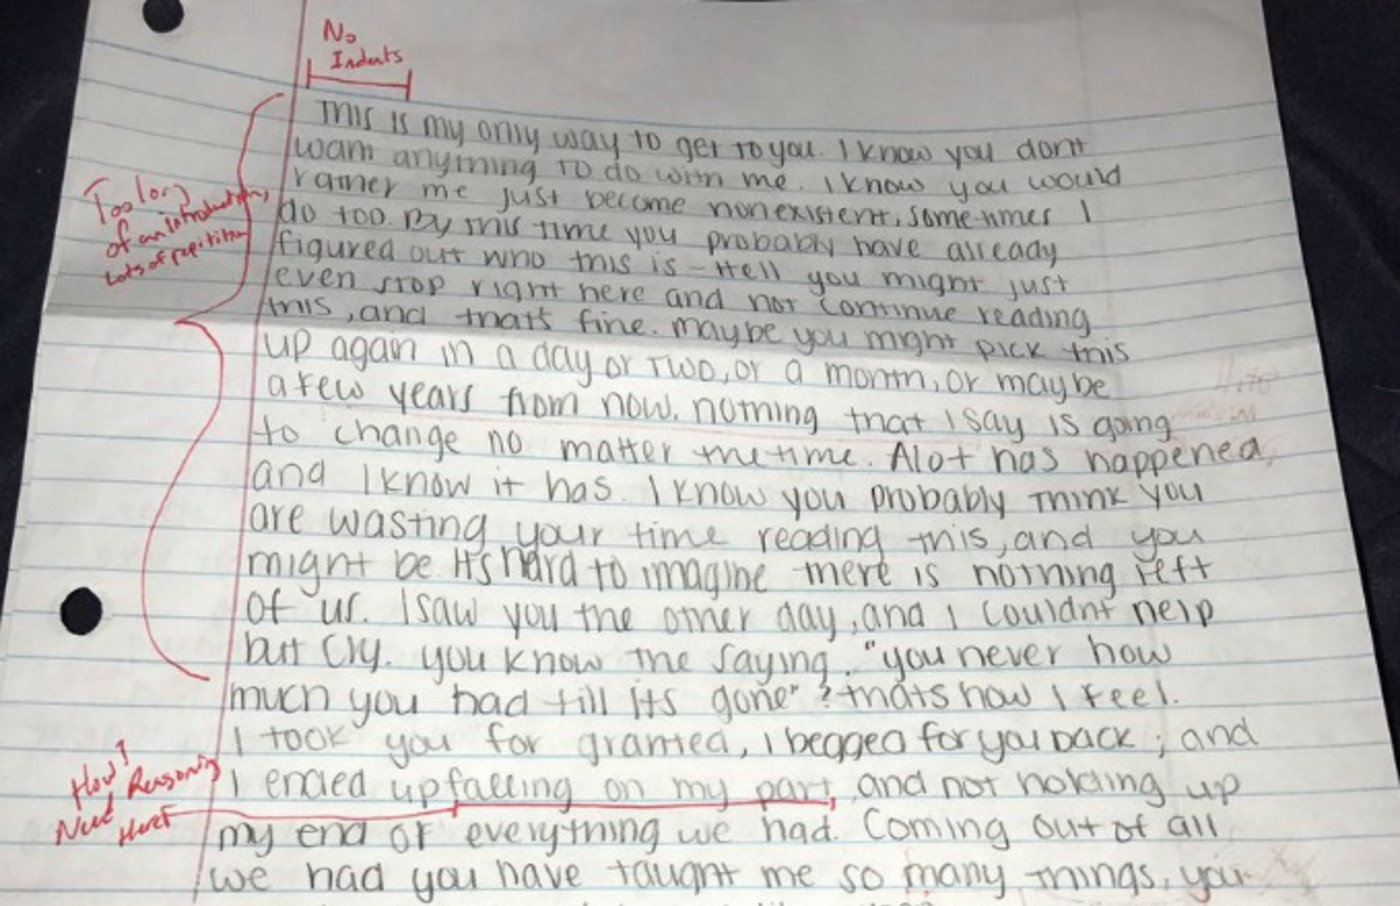 No
Indents
This is my only way to get to you. I know you dont
want anything to do with me. I know you would
rather me just become nonexistent, sometimes I
do too. By this time you probably have already
figured out who this is - Hell you might just
even stop right here and not continue reading
this, and thats fine. maybe you might pick this
up again in a day or two, or a month, or maybe
a few years from now. nothing that I say is going
to change no matter the time. Alot has happened,
and I know it has. I know you probably think you
are wasting your time reading this, and you
might be. It's hard to imagine there is nothing left
of us. I saw you the other day, and I couldnt help
but cry. you know the saying. "you never how
much you had till its gone"? thats how I feel.
I took you for granted, I begged for you back, and
I ended up falling on my part, and not holding up
my end of everything we had. Coming out of all
we had you have taught me so many things, you
Too long
of an introduction,
Lots of repitition
How?
Need Reasoning
Here